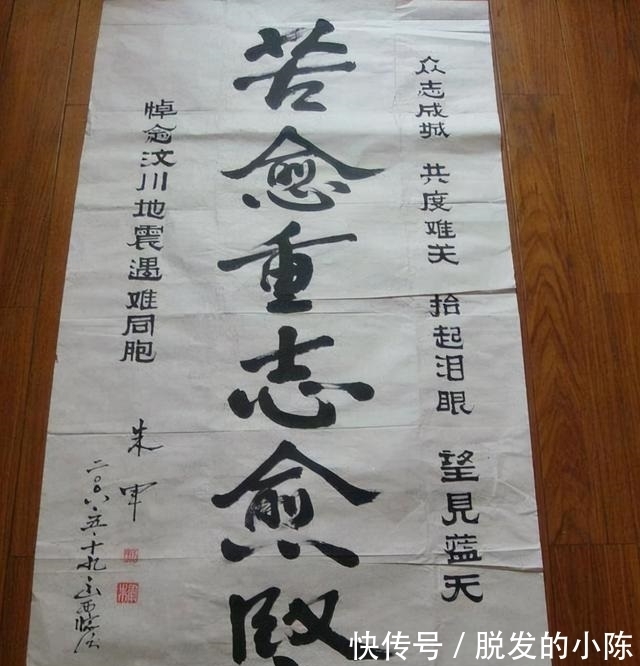 众志成城 共度难关 抬起泪眼 望見蓝天
苦愈重志愈堅
悼念汶川地震遇难同胞
朱军
二〇〇八.五.十九
快传号 / 脱发的小陈